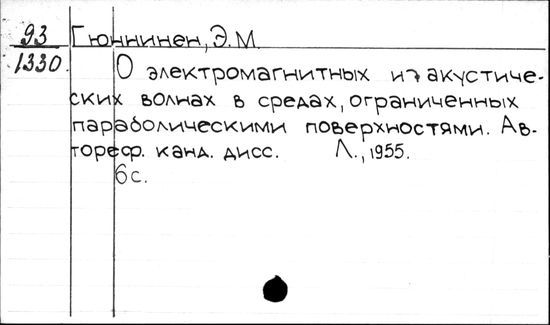 93 Гюннинен, Э.М.
1330. О электромагнитных и акустиче-
ских волнах в средах, ограниченных
параболическими поверхностями. Ав-
тореф. канд. дисс. Л., 1955.
6с.